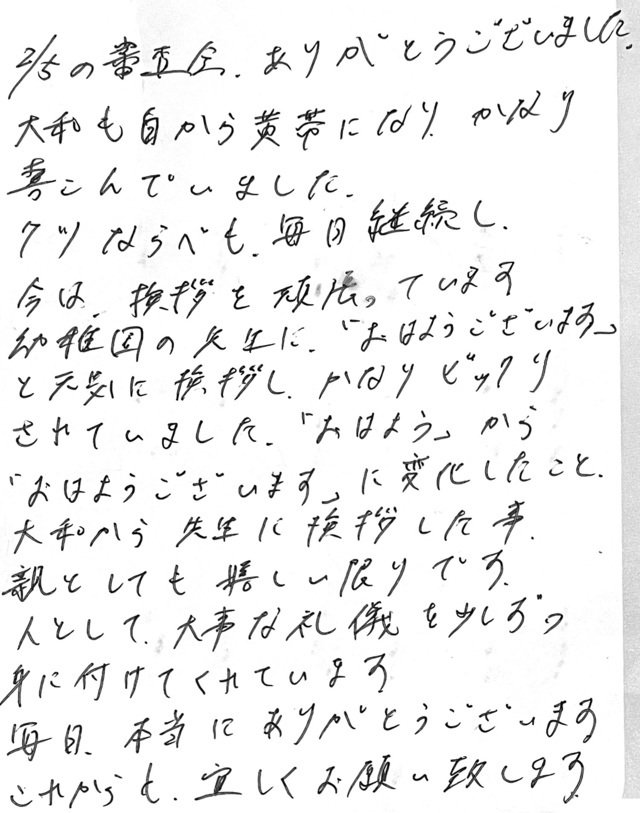 2/5の審査会、ありがとうございました。
大和も白から黄帯になり、かなり
喜こんでいました。
クツならべも、毎日継続し、
今は、挨拶を頑張っています
幼稚園の先生に、「おはようございます」
と元気に挨拶し、かなりビックリ
されていました。「おはよう」から
「おはようございます」に変化したこと、
大和から先生に挨拶した事、
親としても嬉しい限りです。
人として、大事な礼儀を少しずつ
身に付けてくれています
毎日、本当にありがとうございます
これからも、宜しくお願い致します。